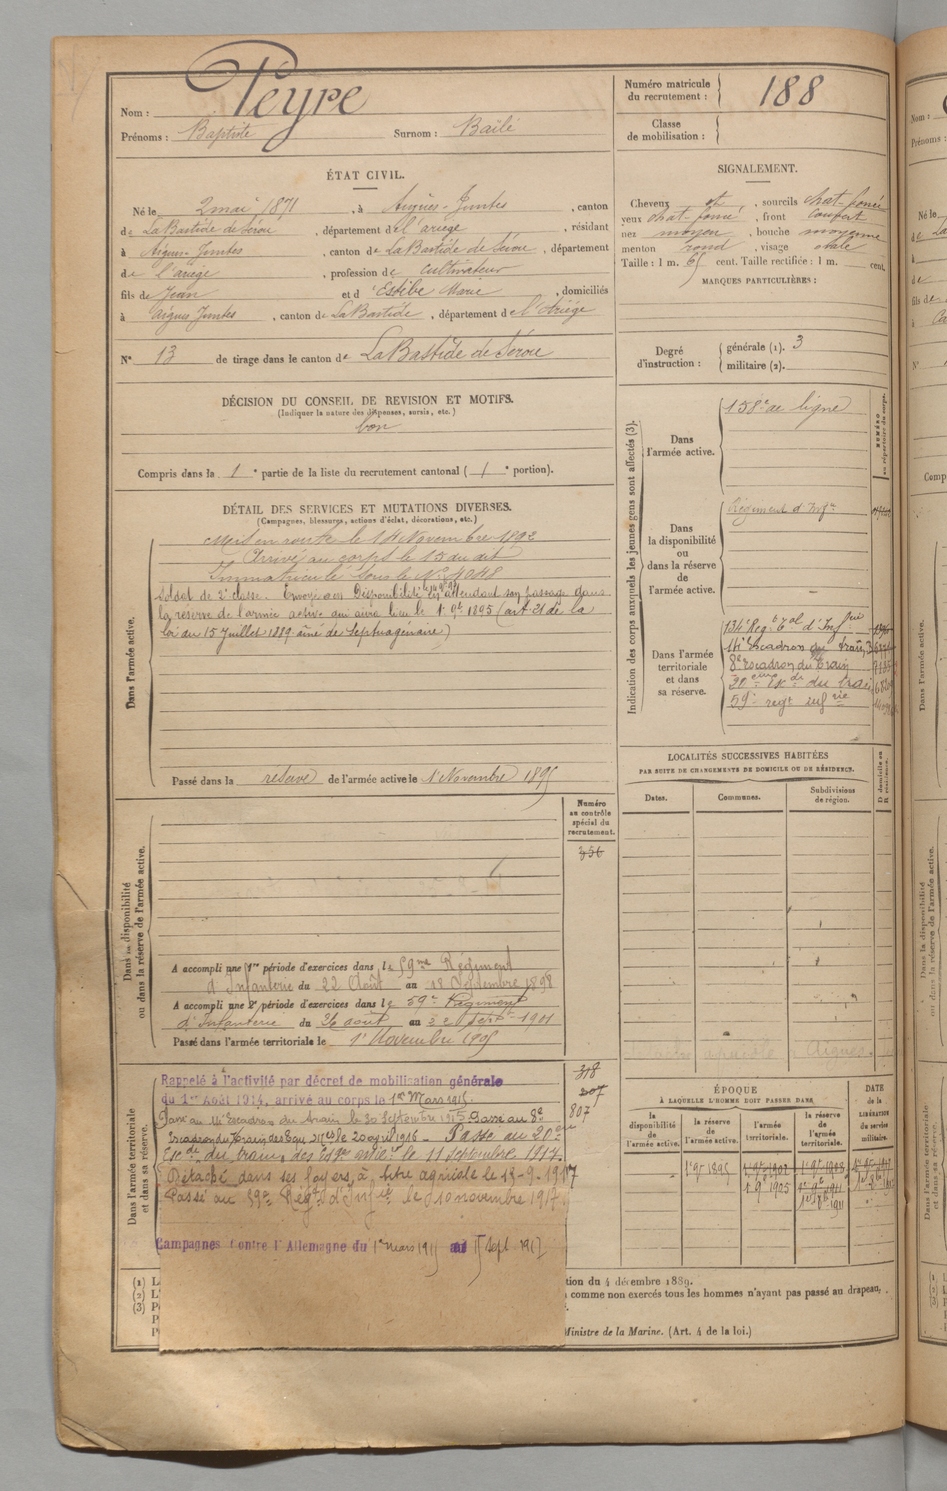 Nom : Peyre
Prénoms : Baptiste Surnom : Baile
Numéro matricule du recrutement : 188
Classe de mobilisation :
ÉTAT CIVIL.
Né le 2 mai 1871, à Aigues-Juntes, canton
de La Bastide de Sérou, département de l'ariege, résidant
à Aigues-Juntes, canton de La Bastide de Serou, département
de l'ariege, profession de cultivateur
fils de Jean et d'Estèbe Marie, domiciliés
à Aigues Juntes, canton de La Bastide, département de l'Ariége
N° 13 de tirage dans le canton de La Bastide de Sérou
SIGNALEMENT.
Cheveux et, sourcils chat-foncé
yeux chat-foncé, front couvert
nez moyen, bouche moyenne
menton rond, visage ovale
Taille : 1 m. 65 cent. Taille rectifiée : 1 m. cent.
MARQUES PARTICULIÈRES :
Degré d'instruction : générale (1). 3
militaire (2).
DÉCISION DU CONSEIL DE REVISION ET MOTIFS.
(Indiquer la nature des dispenses, sursis, etc.)
bon
Compris dans la 1e partie de la liste du recrutement cantonal (1e portion).
DÉTAIL DES SERVICES ET MUTATIONS DIVERSES.
(Campagnes, blessures, actions d'éclat, décorations, etc.)
Dans l'armée active.
Mis en route le 14 Novembre 1892
Arrivé au corps le 15 du dit
Immatriculé sous le N° 4048
Soldat de 2e classe. Envoyé en Disponibilité en attendant son passage dans
la réserve de l'armée active qui aura lieu le 1er 9bre 1895 (art 21 de la
loi du 15 Juillet 1889 ainé de Septuagénaire)
Passé dans la reserve de l'armée active le 1er Novembre 1895
Indication des corps auxquels les jeunes gens sont affectés (3).
NUMÉRO au répertoire du corps.
Dans l'armée active.
158e de ligne
Dans la disponibilité ou dans la réserve de l'armée active.
Régiment d'Infie
Dans l'armée territoriale et dans sa réserve.
134e Regt Tal d'Infrie
14e Escadron du train
8e Escadron du Train
20eme Esc de du train
59e regt infrie
LOCALITÉS SUCCESSIVES HABITÉES
PAR SUITE DE CHANGEMENTS DE DOMICILE OU DE RÉSIDENCE.
Dates. Communes. Subdivisions de région. D domicile ou R résidence.
Dans la disponibilité ou dans la réserve de l'armée active.
Numéro au contrôle spécial du recrutement.
356
A accompli une 1re période d'exercices dans le 59me Régiment
d'Infanterie du 22 Août au 18 Septembre 1898
A accompli une 2e période d'exercices dans le 59e Régiment
d'Infanterie du 26 août au 22 Sept 1901
Passé dans l'armée territoriale le 1er Novembre 1905
Dans l'armée territoriale et dans sa réserve.
318
207
807
Rappelé à l'activité par décret de mobilisation générale
du 1er Août 1914, arrivé au corps le 1er Mars 1915.
Passé au 14e Escadron du train le 30 Septembre 1915 Passé au 8e
Escadron du Train des Equ. le 20 avril 1916 - Passé au 20e
Esc de du train des Eqes le 11 septembre 1917.
Détaché dans ses foyers, à titre agricole le 15-9-1917
Passé au 59e Régt d'Infie le 10 novembre 1917
Campagnes Contre l'Allemagne du 1er mars 1915 au 15 Sept 1917
ÉPOQUE
À LAQUELLE L'HOMME DOIT PASSER DANS
la disponibilité de l'armée active. la réserve de l'armée active. l'armée territoriale. la réserve de l'armée territoriale.
DATE de la LIBÉRATION du service militaire.
1er 9bre 1895
1er 9bre 1905
(1) L
(2) L'
(3) P
P
P
tion du 4 décembre 1889.
comme non exercés tous les hommes n'ayant pas passé au drapeau,
Ministre de la Marine. (Art. 4 de la loi.)